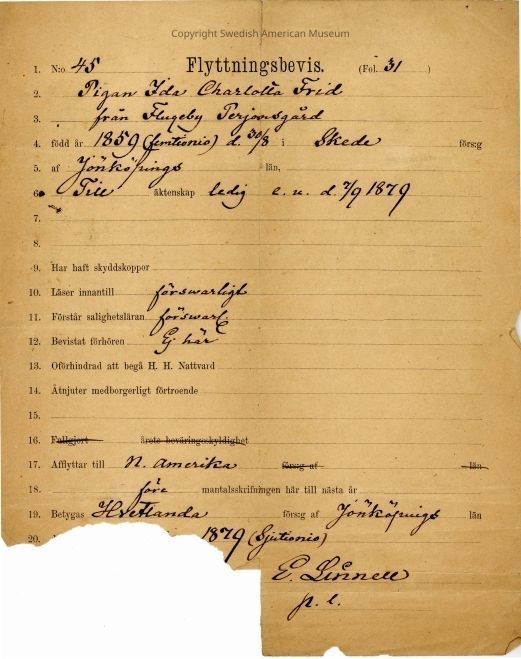 Copyright Swedish American Museum
1. N:o 45 Flyttningsbevis. (Fol. 31)
2. Pigan Ida Charlotta Frid
3. från Flugeby Perjonsgård
4. född år 1859 (femtionio) d. 30/8 i Skede förs:g
5. af Jönköpings län,
6. Till äktenskap ledig e. u. d. 2/9 1879
7.
8.
9. Har haft skyddskoppor
10. Läser innantill försvarligt
11. Förstår salighetsläran försvarl.
12. Bevistat förhören Ej här
13. Oförhindrad att begå H. H. Nattvard
14. Åtnjuter medborgerligt förtroende
15.
16. Fullgjort årets beväringsskyldighet
17. Afflyttar till N. Amerika förs:g af län
18. före mantalsskrifningen här till nästa år
19. Betygas Hvetlanda förs:g af Jönköpings län
20. 1879 (Sjutionio)
E. Linnell
p. l.